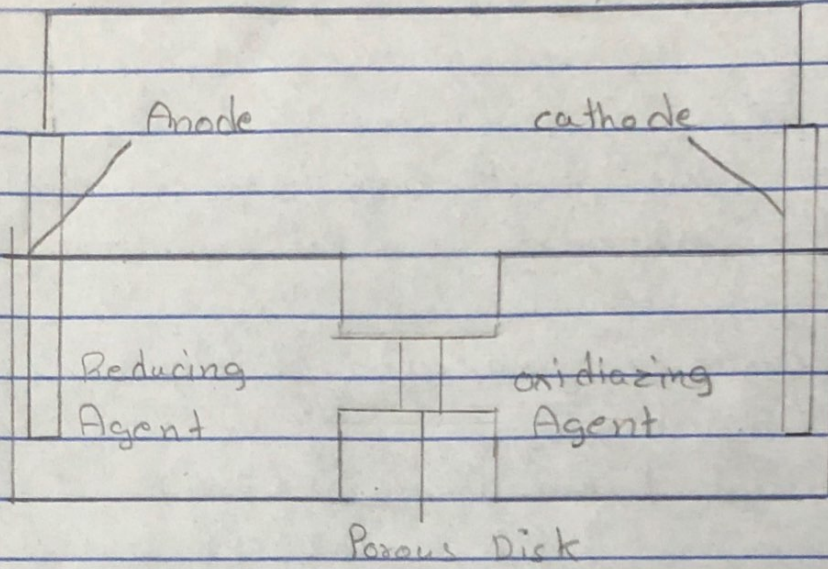 Anode
cathode
Reducing
Agent
oxidiazing
Agent
Porous Disk